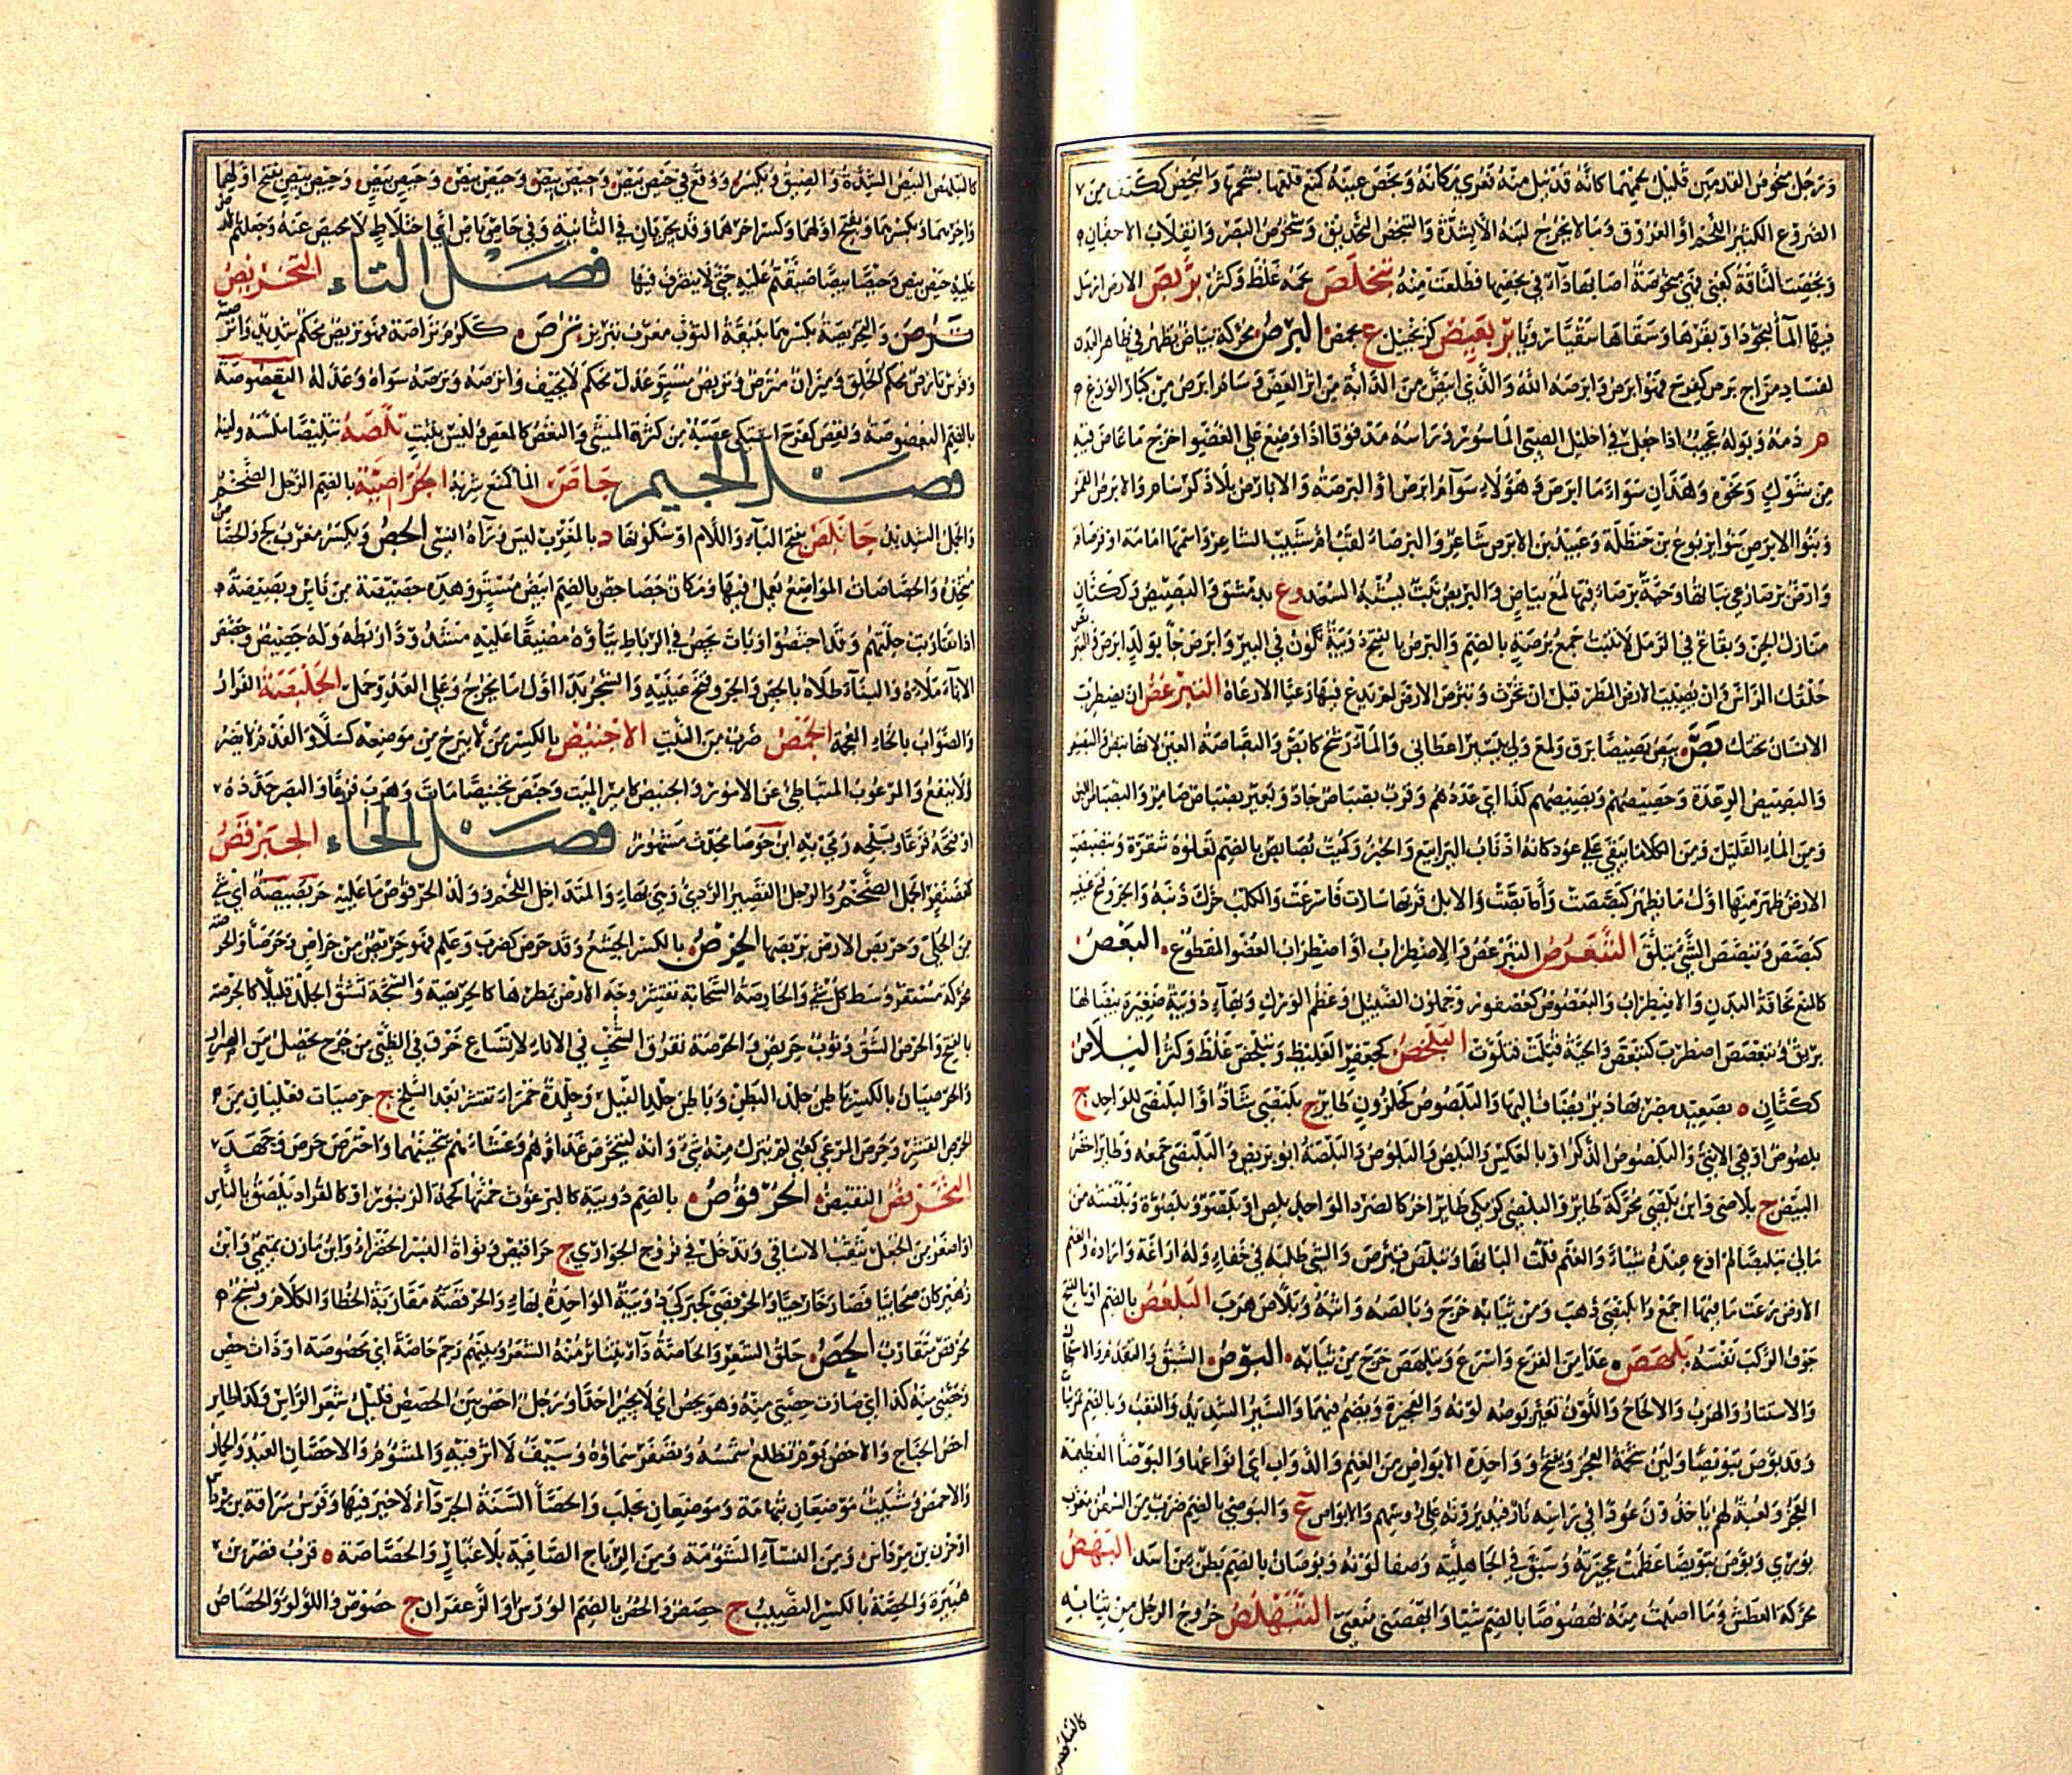 ورجل مبخوص القدمين قليل لحمهما كأنه قد نيل منه فعري مكانه وبخص عينه كمنع قلعها بشحمها والبخص ككتف من
الضروع الكثير اللحم أو العروق وما لا يخرج لبنه إلا بشدة والتبخص التحديق وشخوص البصر وانقلاب الأجفان
وبخصت الناقة كعني فهي مبخوصة أصابها داء في بخصها فظلعت منه تبخلص لحمه غلظ وكثر بربص الأرض أرسل
فيها الماء لتجود أو بقرها وسقاها سقيا رويا بربعيص كزنجبيل ع بحمص البرص محركة بياض يظهر في ظاهر البدن
لفساد مزاج برص كفرح فهو أبرص وأبرصه الله والذي ابيض من الدابة من أثر العض وسام أبرص من كبار الوزغ
م دمه وبوله عجيب إذا جعل في إحليل الصبي المأسور ورأسه مدقوقا إذا وضع على العضو أخرج ما غاص فيه
من شوك ونحوه وهذان سوامّا أبرص وهؤلاء سوام أبرص أو البرصة والأبارص بلا ذكر سام والأبرص القمر
وبنو الأبرص بنو يربوع بن حنظلة وعبيد بن الأبرص شاعر والبرصاء لقب أم شبيب الشاعر واسمها أمامة أو قرصافة
وأرض برصاء رعي نباتها وحية برصاء فيها لمع بياض والبريص نبت يشبه السعد وع بدمشق والبصيص وككتاب
منازل الجن وبقاع في الرمل لا تنبت جمع برصة بالضم والبرص بالفتح دويبة تكون في البير وأبرص جاء بولد أبرص والتبريص
حلقك الرأس وأن يصيب الأرض المطر قبل أن تحرث وتبرص الأرض لم يدع فيها رعيا إلا رعاه التبرعص أن يضطرب
الإنسان تحتك بص يبص بصيصا برق ولمع ولي بيسير أعطاني والماء رشح كابتص والبصاصة العين لأنها تبص والبصير
والبصيص الرعدة وحصيصهم وبصيصهم كذا أي عددهم وقرب بصباص جاد وبعير بصباص ضامر والبصباص اللبن
ومن الماء القليل ومن الكلأ ما يبقى على عوده كأنه أذناب اليرابيع والخبز وكميت بصابص بالضم تعلوه شقرة وبصبصت
الأرض ظهر منها أول ما يظهر كبصصت وأبصت والإبل قربها سارت فأسرعت والكلب حرك ذنبه والجرو فتح عينيه
كبصص وتبصبص الشيء تملق التبعرص التبرعص والاضطراب أو اضطراب العضو المقطوع البعص
كالمنع نحافة البدن والاضطراب والبعصوص كعصفور وحملون الضئيل وعظم الورك وبهاء دويبة صغيرة بيضا لها
بريق وتبعصص اضطرب كتبعص والحية قتلت فتلوت البلخص كجعفر الغليظ وتبلخص غلظ وكثر البلاص
ككتان بصعيد مصر بها دير يضاف إليها والبلصوص كحلزون طاير ج بلنصى شاذ أو البلنصى للواحد ج
بلصوص أو هي الأنثى والبلصوص الذكر أو بالعكس والبلص والبلوص والبلصة أبو بريص والبلنصى جمعه وطاير أخضر
البيض ج بلاصي وابن بلصى محركة طاير والبلصى كزمكى طاير آخر كالصرد الواحد بلص أو بلصو وبلصوة وبلصته من
مالي تبليصا لم أدع عنده شيئا والغنم قلت ألبانها وتبلص وتبرص والشيء طلبه في خفاء وله أراغه وأراده والغنم
الأرض رعت ما فيها أجمع وابلنصى ذهب ومن ثيابه خرج وبالصه واثبه وبلأص هرب البلعص بالضم أو بالفتح
جوف الركب نفسه بلهص عدا من الفزع وأسرع وتبلهص خرج من ثيابه البوص السبق والتقدم والاستعجال
والاستتار والهرب والإلحاح واللون تغير بوصه لونه والعجيزة ويضم فيهما والسير الشديد والتعب وبالضم ثمر نبات
وقد بوص تبويصا ولين شحمة العجز ويفتح وواحدة الأبواص من الغنم والدواب أي أنواعها والبوصاء العظيمة
العجز ولعبة لهم يأخذون عودا في رأسه نار فيديرونه على رؤسهم والأبواص ع والبوصي بالضم ضرب من السفن معرب
بوزي وبوص تبويصا عظمت عجيزته وسبق في الحلبة وصفا لونه وبوصان بالضم بطن من أسد البهص
محركة العطش وما أصبت منه بهصوصا بالضم شيئا وأبهصني منعني التبهلص خروج الرجل من ثيابه
كالتبلهص
كالتبلهص البيص الشدة والضيق ويكسر ووقع في حيص بيص وحيص بيص وحيص بيص وحيص بيص وحيص بيص بفتح أولهما
وآخرهما وبكسرهما وبفتح أولهما وكسر آخرهما وقد يجريان في الثانية وفي حاص باص أي اختلاط لا محيص عنه وجعلتم الأرض
عليه حيص بيص وحيصا بيصا ضيقتم عليه حتى لا يتصرف فيها فصل التاء التخريص
والتخريصة بكسرهما بنيقة الثوب معرب تيريز ترص ككرم تراصة فهو تريص محكم شديد وأترصته
وفرس تارص محكم الخلق وميزان مترص وتريص مستو عدل محكم لا يحيف وأترصه وترصه سواه وعدله التعصوصة
بالضم البعصوصة وتعص كفرح اشتكى عصبه من كثرة المشي والتعص كالمغص وليس بثبت تلصه تتليصا ملسه ولينه
فصل الجيم جاص الماء كمنع شربه الجراصية بالضم الرجل الضخم
والجمل الشديد جابلص بفتح الباء واللام أو سكونها د بالمغرب ليس وراءه إنسي الجص ويكسر معرب كج والجصاص
متخذه والجصاصات المواضع يعمل فيها ومكان جصاجص بالضم أبيض مستو وهذه جصيصة من ناس وبصيصة
إذا تقاربت حلتهم وقد اجتصوا وبات يجص في الرباط يتأوه مضيقا عليه مشدد وذا ربطه وله جصيص وجصص
الإناء ملأه والبناء طلاه بالجص والجرو فتح عينيه والشجر بدا أول ما يخرج وعلى العدو حمل الجلبصة الفرار
والصواب بالخاء المعجمة الجمص ضرب من النبت الإجنيص بالكسر من لا يبرح من موضعه كسلا والفدم لا يضر
ولا ينفع والمرعوب المتباطئ عن الأمور والجنيص كأمير الميت وجنص تجنيصا مات وهرب فزعا والبصر حدده
أو فتحه فزعا وبسلحه رمى به ابن جوصا محدث مشهور فصل الحاء الحبرقص
كغضنفر الجمل الضخم والرجل القصير الردي وهي بهاء والمتداخل اللحم وولد الحرقوص ما عليه حربصيصة أي شيء
من الحلي وحربص الأرض بربصها الحرص بالكسر الجشع وقد حرص كضرب وعلم فهو حريص من حراص وحرصاء والحرصة
محركة مستقر وسط كل شيء والحارصة السحابة تقشر وجه الأرض بمطرها كالحريصة والشجة تشق الجلد قليلا كالحرصة
بالفتح والحرص الشق وثوب حريص والحرصة تعرق الشخب في الإناء لاتساع خرق في الطبي من جرح يحصل من الصرار
والحرصيان بالكسر باطن جلد البطن وباطن جلد الفيل وجلدة حمراء تقشر بعد السلخ ج حرصيات فعليان من
الحرص القشر وحرص المرعى كعني لم يترك منه شيء وأنه ليتحرص غداءهم وعشاءهم يتحينهما واحترص حرص وجهد
التحريص التقبيض الحرقوص بالضم دويبة كالبرغوث حمتها كحمة الزنبور أو كالقراد يلصق بالناس
أو أصغر من الجعل تنقب الأساقي وتدخل في فروج الجواري ج حراقيص ونواة البسر الخضراء وابن مازن تميمي وابن
زهير كان صحابيا فصار خارجيا والحرقصى كحبركى دويبة الواحدة بهاء والحرقصة مقاربة الخطا والكلام ونسج
محرقص متقارب الحص حلق الشعر والحاصة داء يتناثر منه الشعر وبينهم رحم حاصة أي محصوصة أو ذات حص
وحصني منه كذا أي صارت حصتي منه وهو يحص أي لا يجير أحدا ورجل أحص بين الحصص قليل شعر الرأس وكذا طاير
أحص الجناح والأحص يوم تطلع شمسه وتصفو سماؤه وسيف لا أثر فيه والمشؤم والأحصان العبد والحمار
والأحص وشبيث موضعان بتهامة وموضعان بحلب والحصاء السنة الجرداء لا خير فيها وفرس سراقة بن مرداس
أو حزن بن مرداس ومن النساء المشؤمة ومن الرياح الصافية بلا غبار والحصاصة قرب قصر ابن
هبيرة والحصة بالكسر النصيب ج حصص والحص بالضم الورس أو الزعفران ج حصوص واللؤلؤ والحصاص